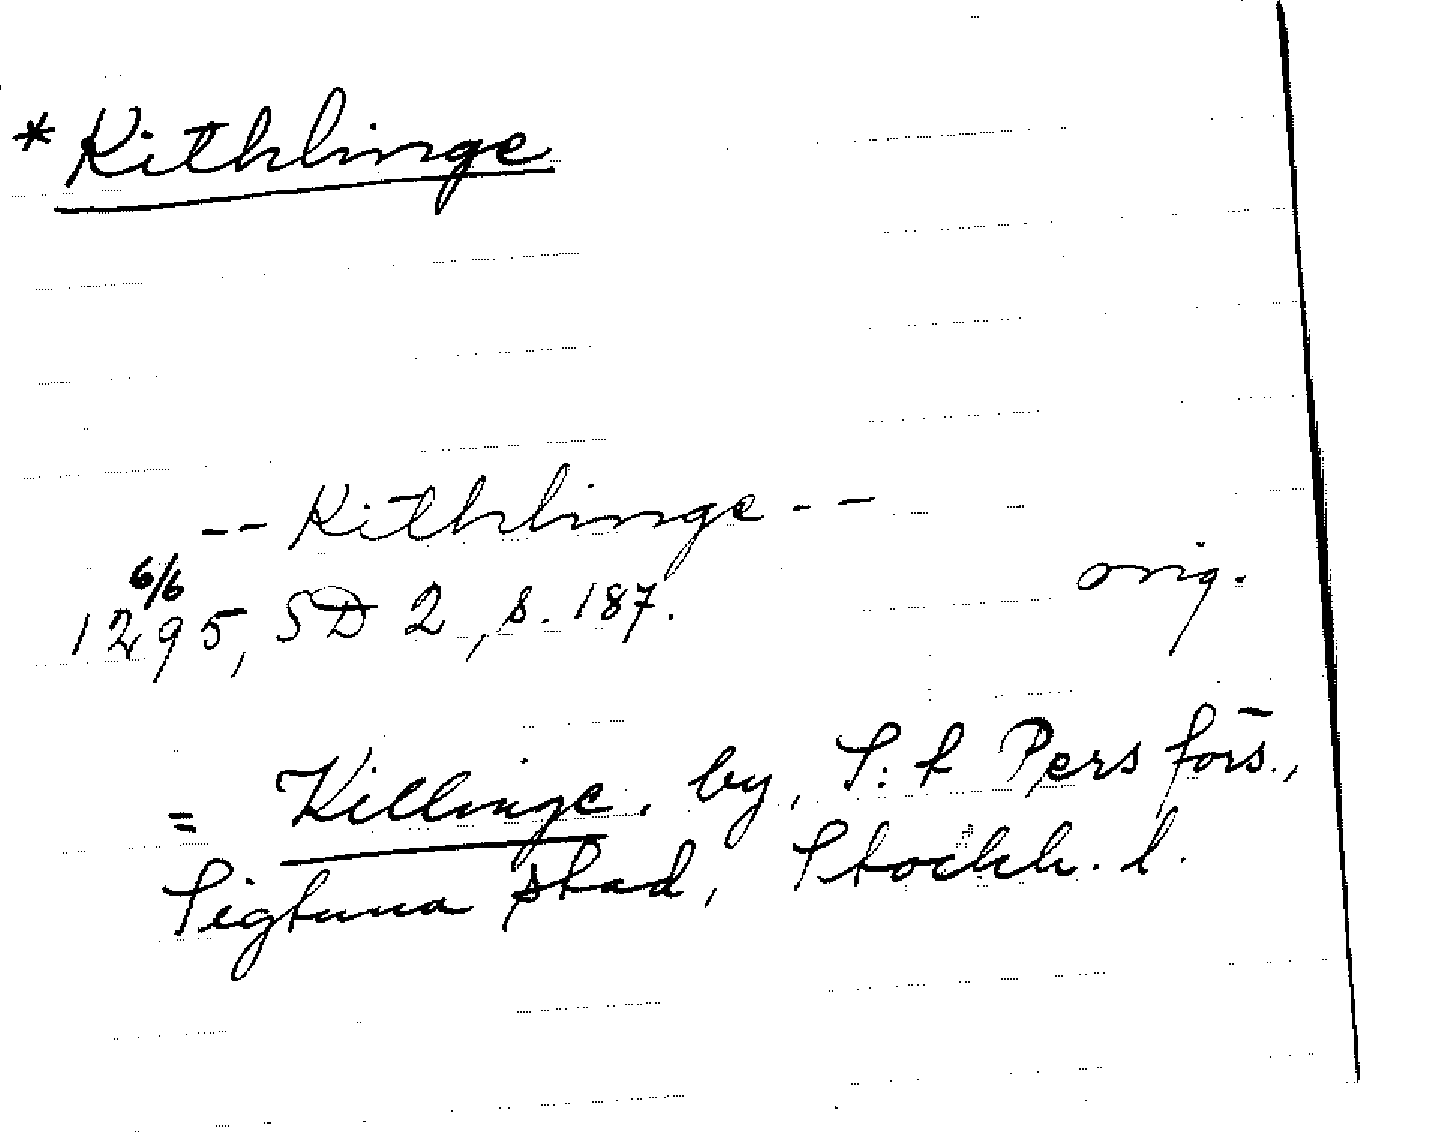 * Kithlinge
-- Kithlinge --
6/6
1295, SD 2, s. 187. orig.
= Killinge, by, S:t Pers förs.,
Sigtuna stad, Stockh. l.